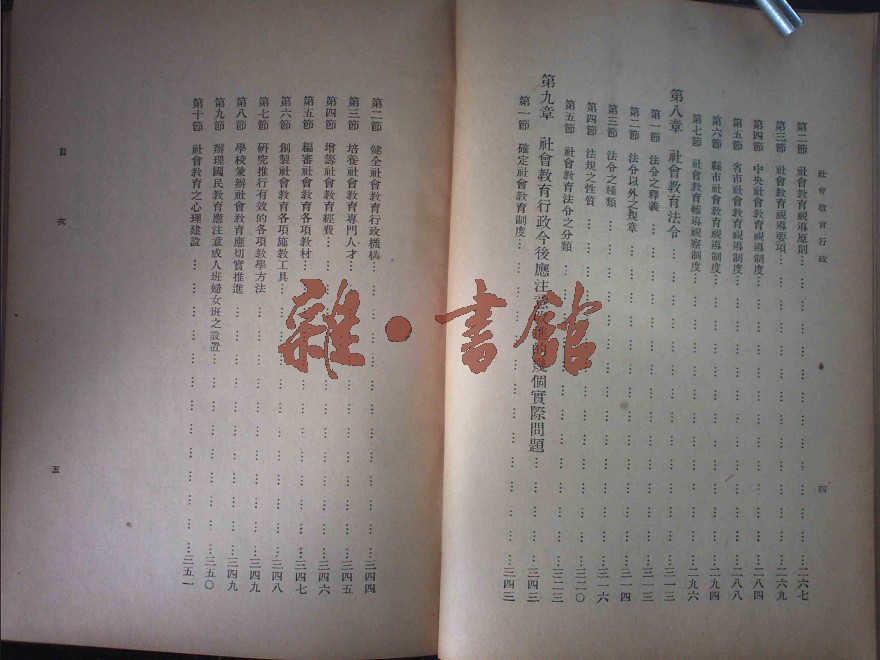 社會教育行政
四
第二節 社會教育視導原則……二六七
第三節 社會教育視導要項……二六九
第四節 中央社會教育視導制度……二八四
第五節 省市社會教育視導制度……二八八
第六節 縣市社會教育視導制度……二九四
第七節 社會教育輔導視察制度……二九六
第八章 社會教育法令……三一三
第一節 法令之釋義……三一三
第二節 法令以外之規章……三一四
第三節 法令之種類……三一六
第四節 法規之性質……三二〇
第五節 社會教育法令之分類……三二三
第九章 社會教育行政今後應注意改進的幾個實際問題……三四三
第一節 確定社會教育制度……三四三
第二節 健全社會教育行政機構……三四四
第三節 培養社會教育專門人才……三四五
第四節 增籌社會教育經費……三四六
第五節 編審社會教育各項教材……三四七
第六節 創製社會教育各項施教工具……三四八
第七節 研究推行有效的各項教學方法……三四九
第八節 學校兼辦社會教育應切實推進……三四九
第九節 辦理國民教育應注意成人班婦女班之設置……三五〇
第十節 社會教育之心理建設……三五一
目次
五
雜·書館